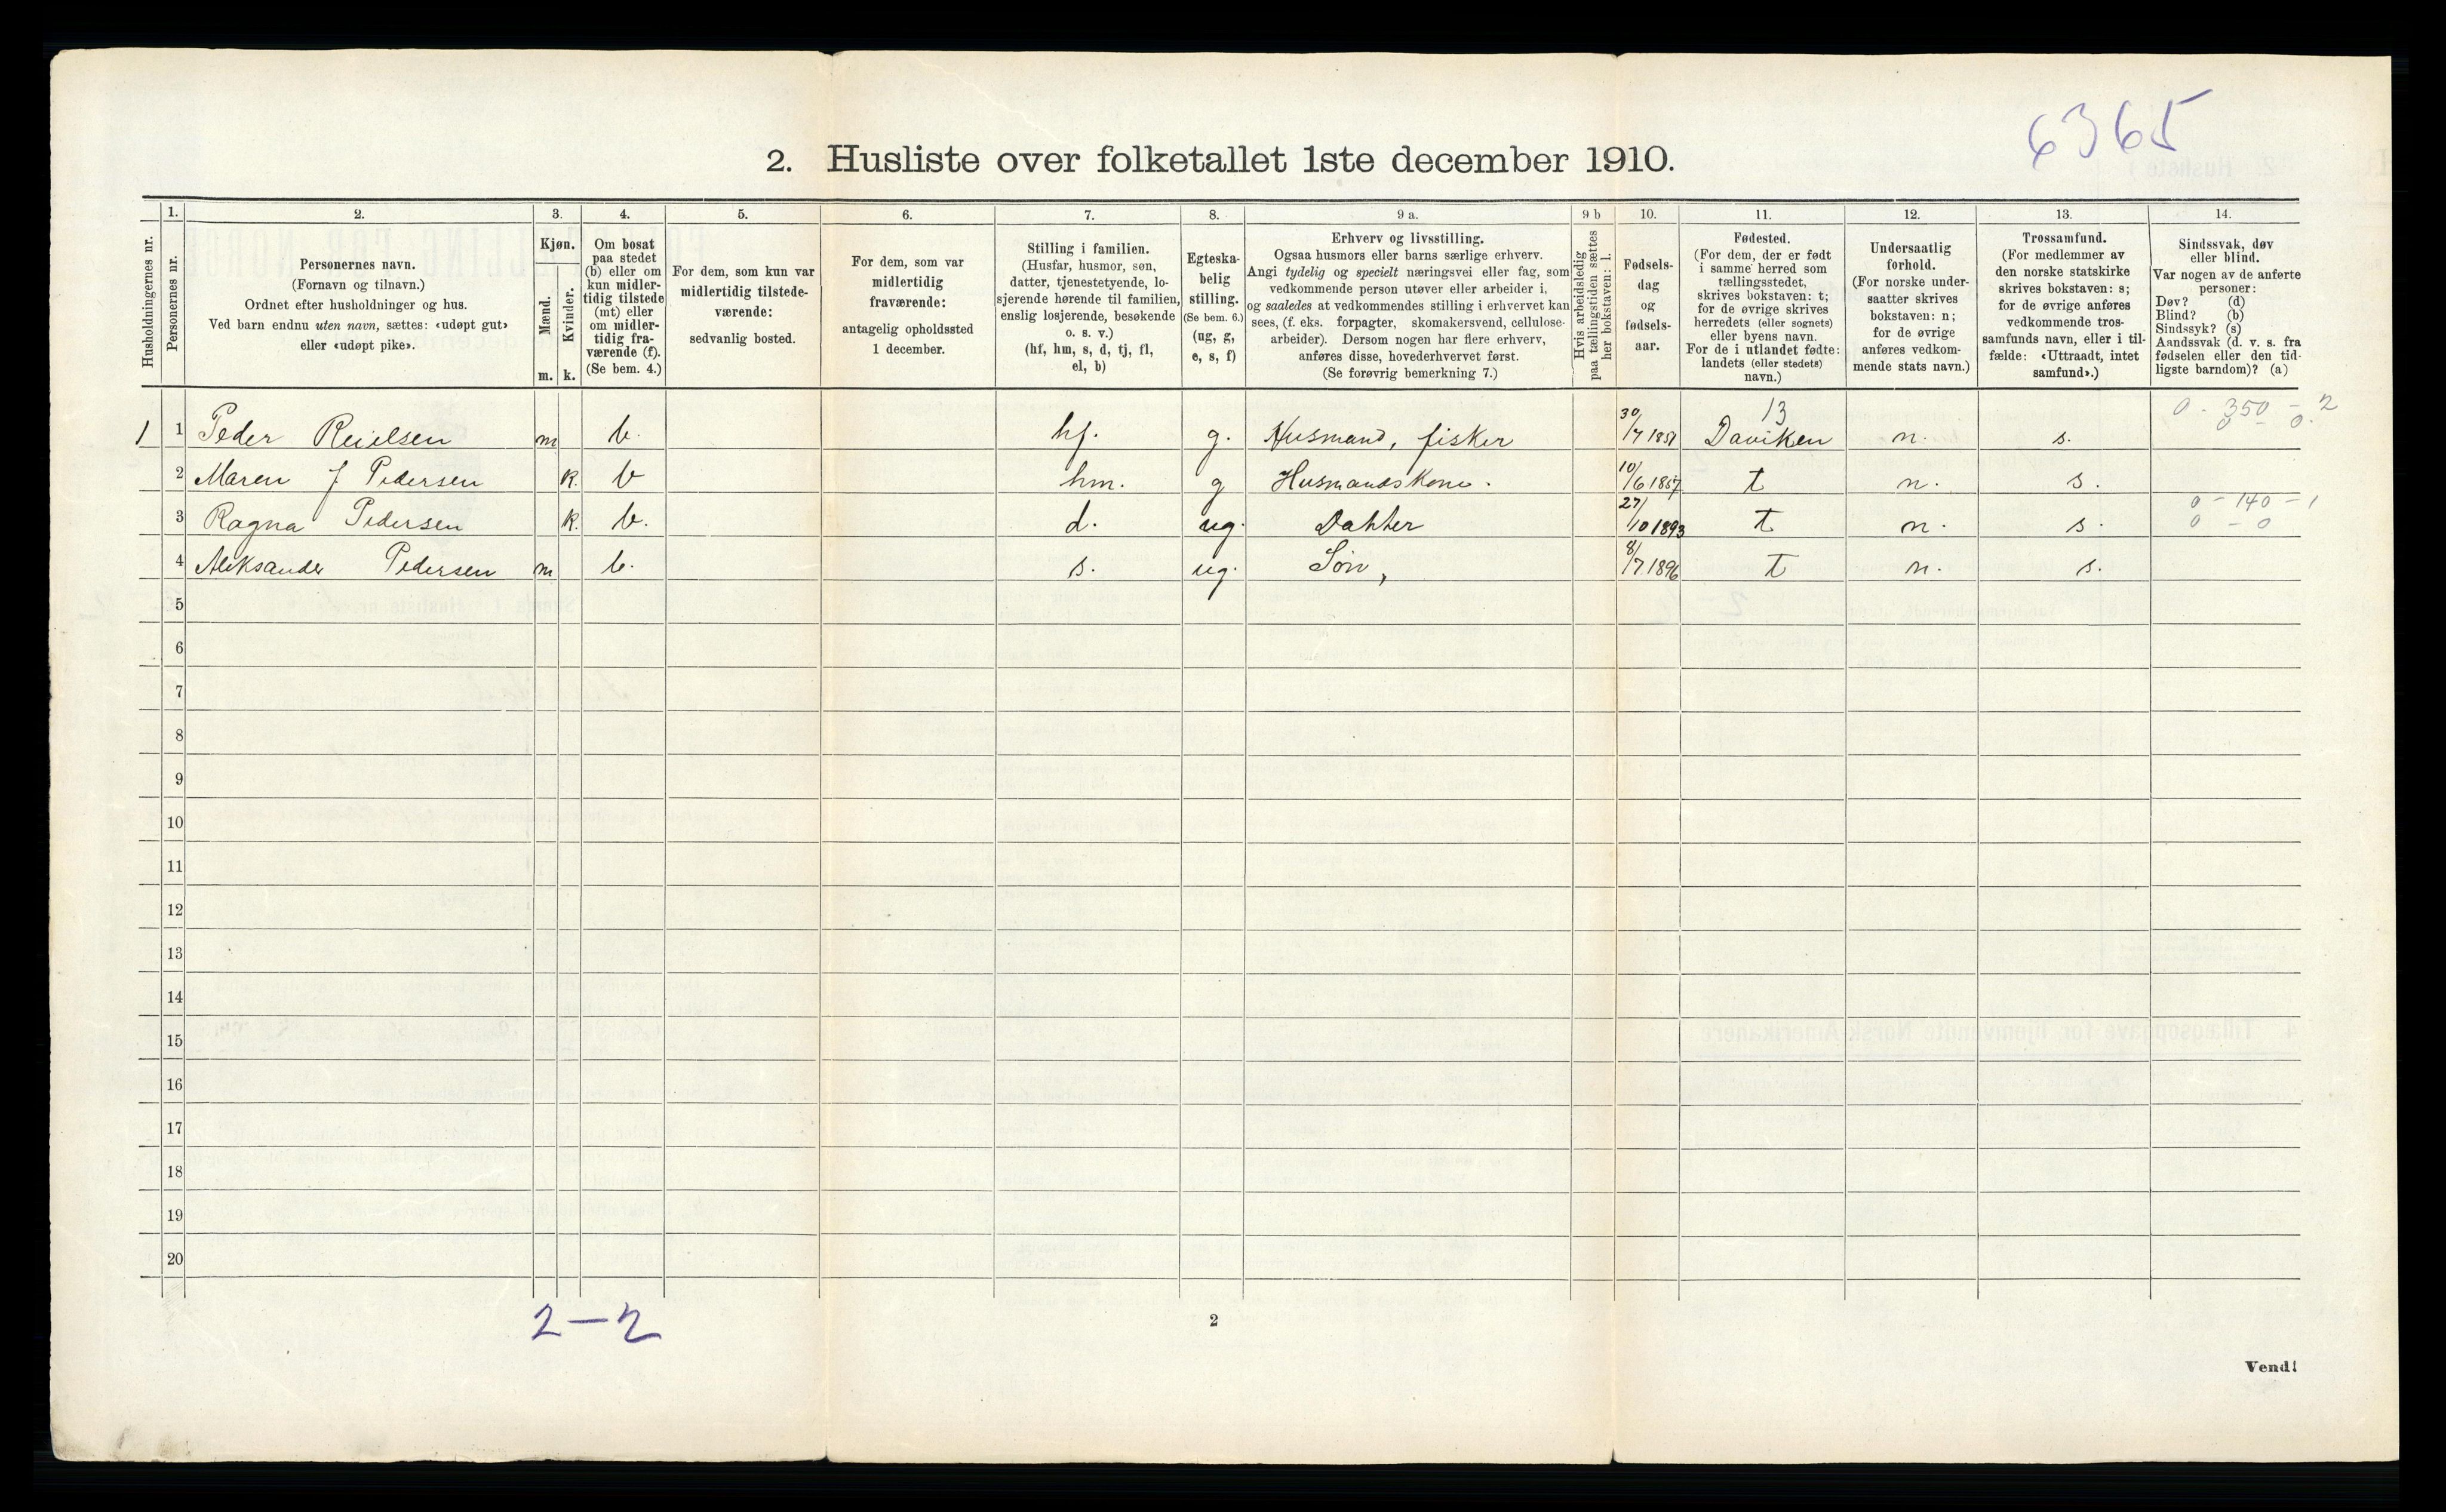 6365
2. Husliste over folketallet 1ste december 1910.
Husholdningernes nr.
1.
Personernes nr.
2.
Personernes navn.
(Fornavn og tilnavn.)
Ordnet efter husholdninger og hus.
Ved barn endnu uten navn, sættes: «udøpt gut»
eller «udøpt pike».
3.
Kjøn.
Mænd.
Kvinder.
m. k.
4.
Om bosat
paa stedet
(b) eller om
kun midler-
tidig tilstede
(mt) eller
om midler-
tidig fra-
værende (f).
(Se bem. 4.)
5.
For dem, som kun var
midlertidig tilstede-
værende:
sedvanlig bosted.
6.
For dem, som var
midlertidig
fraværende:
antagelig opholdssted
1 december.
7.
Stilling i familien.
(Husfar, husmor, søn,
datter, tjenestetyende, lo-
sjerende hørende til familien,
enslig losjerende, besøkende
o. s. v.)
(hf, hm, s, d, tj, fl,
el, b)
8.
Egteska-
belig
stilling.
(Se bem. 6.)
(ug, g,
e, s, f)
9 a.
Erhverv og livsstilling.
Ogsaa husmors eller barns særlige erhverv.
Angi tydelig og specielt næringsvei eller fag, som
vedkommende person utøver eller arbeider i,
og saaledes at vedkommendes stilling i erhvervet kan
sees, (f. eks. forpagter, skomakersvend, cellulose-
arbeider). Dersom nogen har flere erhverv,
anføres disse, hovederhvervet først.
(Se forøvrig bemerkning 7.)
9 b
Hvis arbeidsledig
paa tællingstiden sættes
her bokstaven: l.
10.
Fødsels-
dag
og
fødsels-
aar.
11.
Fødested.
(For dem, der er født
i samme herred som
tællingsstedet,
skrives bokstaven: t;
for de øvrige skrives
herredets (eller sognets)
eller byens navn.
For de i utlandet fødte:
landets (eller stedets)
navn.)
12.
Undersaatlig
forhold.
(For norske under-
saatter skrives
bokstaven: n;
for de øvrige
anføres vedkom-
mende stats navn.)
13.
Trossamfund.
(For medlemmer av
den norske statskirke
skrives bokstaven: s;
for de øvrige anføres
vedkommende tros-
samfunds navn, eller i til-
fælde: «Uttraadt, intet
samfund».)
14.
Sindssvak, døv
eller blind.
Var nogen av de anførte
personer:
Døv? (d)
Blind? (b)
Sindssyk? (s)
Aandssvak (d. v. s. fra
fødselen eller den tid-
ligste barndom)? (a)
13 0 - 350 - 2
0 - 0.
1 1 Peder Reielsen m b. hf. g. Husmand, fisker 30/7 1851 Daviken n. s.
2 Maren J Pedersen k. b hm. g Husmandskone. 10/6 1857 t n. s.
0 - 140 - 1
3 Ragna Pedersen k. b. d. ug. Dahter 27/10 1893 t n. s. 0 - 0
4 Aleksander Pedersen m b. s. ug. Søn, 8/7 1896 t n. s.
5
6
7
8
9
10
11
12
13
14
15
16
17
18
19
20
2-2
2
Vend!